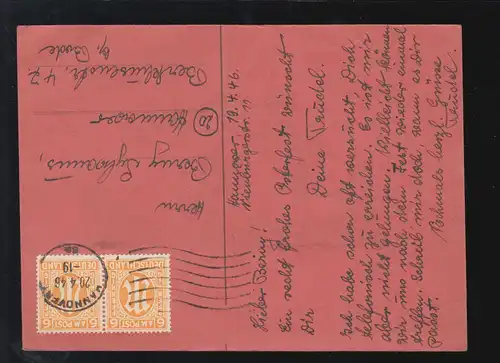 Hannover 19.4.46.
Nienburgerstr. 11
Lieber Benny!
Ein recht frohes Osterfest wünscht
Dir
Deine Trudel.
Ich habe schon oft versucht Dich
telefonisch zu erreichen. Es ist mir
aber nicht gelungen. Vielleicht können
wir uns nach dem Fest wieder einmal
treffen. Schreib mir doch wann es dir
passt.
Nochmals herzl. Grüsse
Trudel.
Herrn
Benny
20 Hannover
47
Bode
HANNOVER
20.4.46
-19
6 AM POST 6
DEUTSCHLAND
6 AM POST 6
DEUTSCHLAND